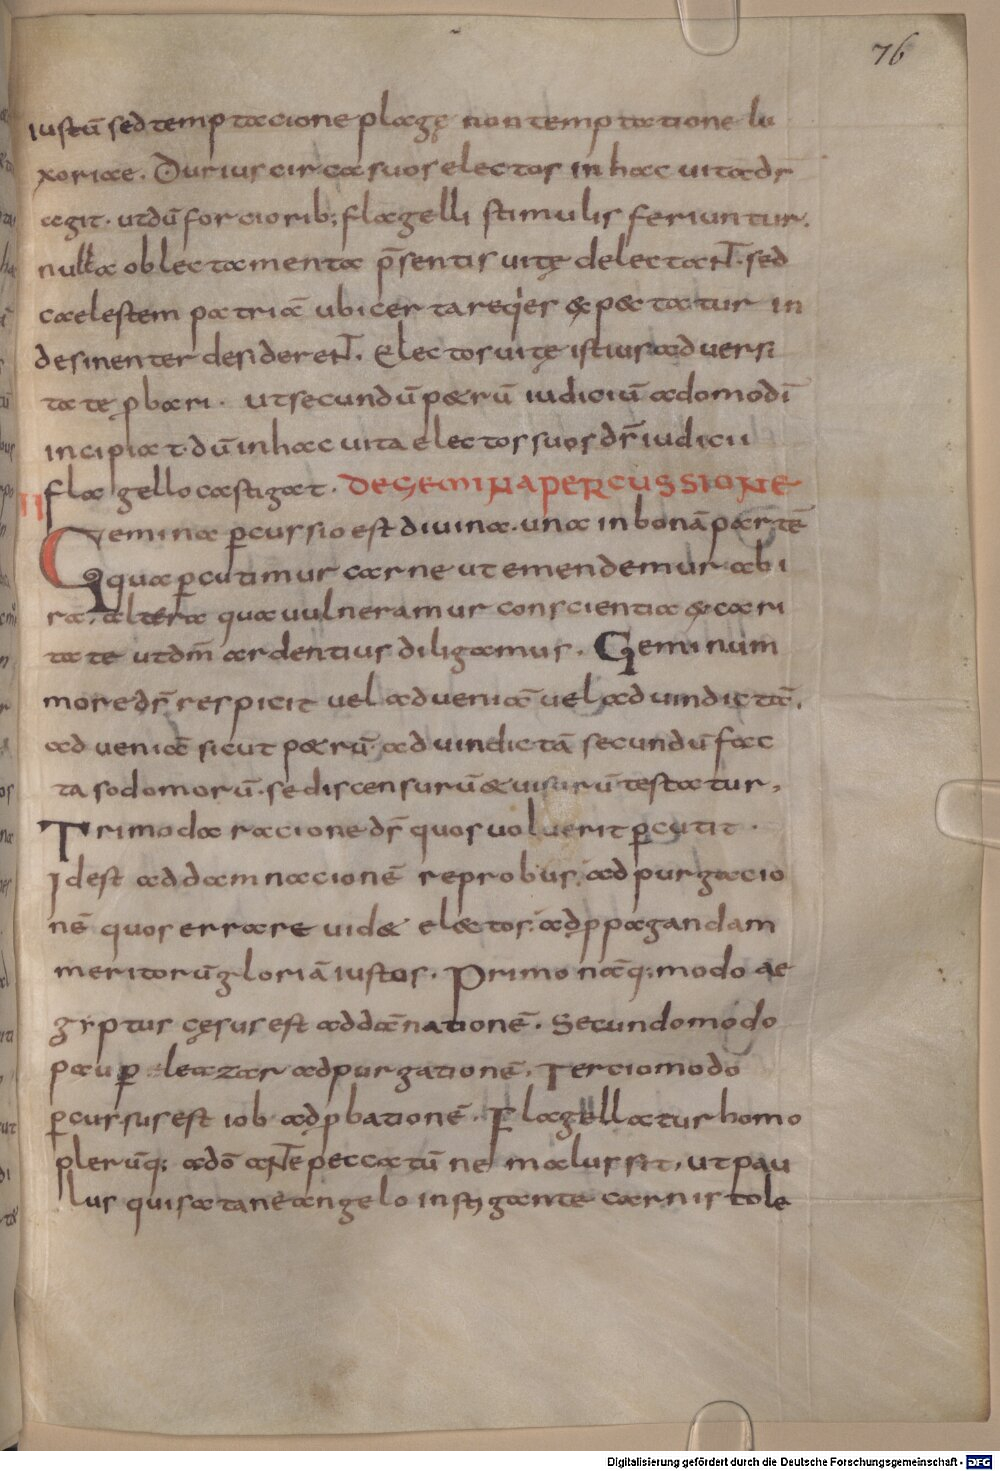 76
iustū sed temptacione plagę non temptatione lu
xoriae. Durius circa suos electos in hac uita ds̄
aegit. ut dū forciorib; flagelli stimulis feriuntur.
nulla oblectamenta p̄sentis uitę delectaN̄T. sed
caelestem patriā ubi certa req̇es expectatur in
desinenter desidereN̄T. Electos uitę istius aduersi
tate ꝓbari. ut secundū petrū iudiciū a domo dn̄i
incipiat. dū in hac uita electos suos ds̄ iudicii
flagello castigat. DE GEMINA PERCUSSIONE
II
Gemina ꝑcussio est diuina. una in bonā partē
qua ꝑcutimur carne ut emendemur. altera
qua uulneramur conscientia ex cari
tate ut dm̄ ardentius diligamus. Geminum
more ds̄ respicit uel ad ueniā uel ad uindictā.
ad ueniā sicut petrū. ad uindictā secundū fac
ta sodomorū. se discensurū & uisurū testatur.
Trimoda racione ds̄ quos uoluerit ꝑcutit.
Idest ad damnacionē reprobus. ad purgacio
nē quos errare uid& electos. ad ꝓpagandam
meritorū gloriā iustos. Primo nāq; modo ae
gyptus cęsus est ad dānationē. Secundo modo
pauꝑ eleazar ad purgationē. Tercio modo
ꝑcursus est iob ad ꝓbationē. Flagellatur homo
plerūq; a dō aN̄TE peccatū ne malus sit, ut pau
lus qui satanē angelo instigante carnis tole
Digitalisierung gefördert durch die Deutsche Forschungsgemeinschaft - DFG